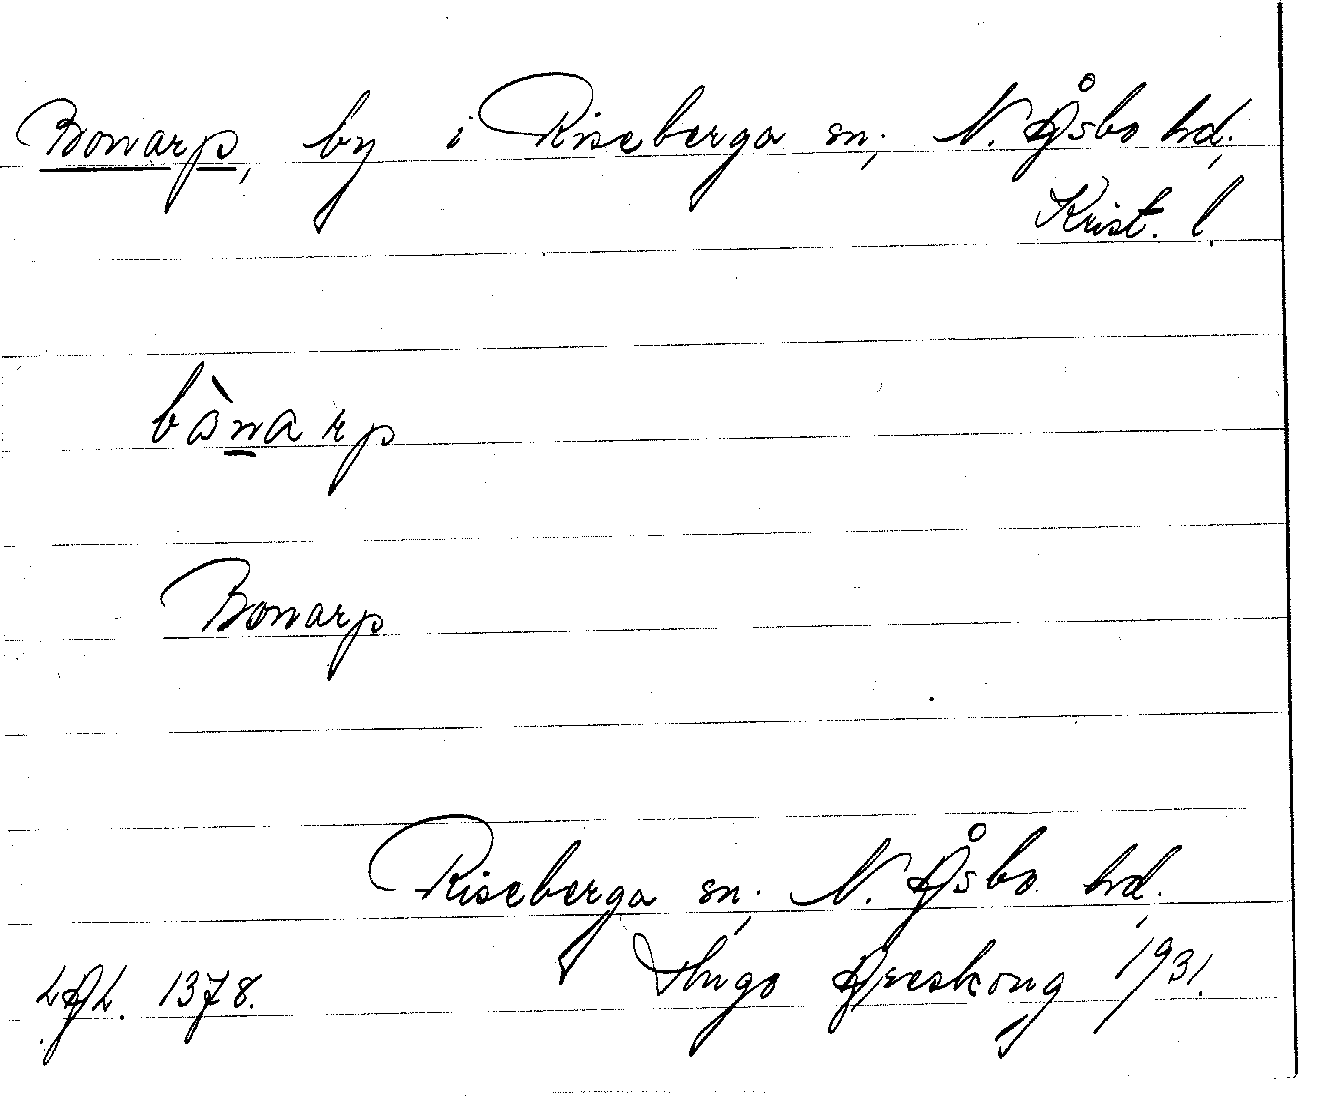 Bonarp, by i Riseberga sn; N. Åsbo hd;
Krist. l.
bònarp
Bonarp
Riseberga sn; N. Åsbo hd;
Hugo Areskoug 1931.
LAL. 1378.